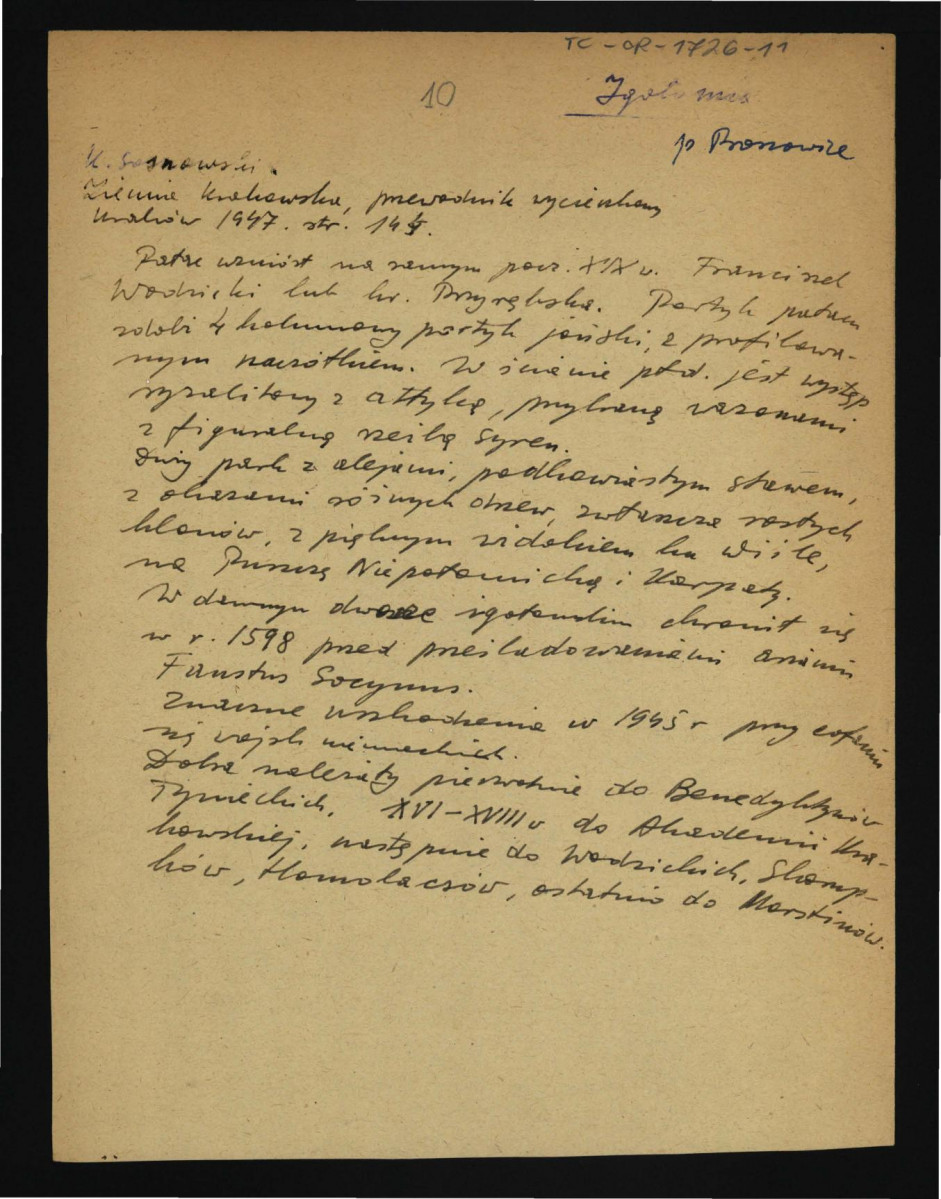 TC-OR-1726-11
10
Igołomia
p Proszowice
K. Sosnowski.
Ziemia Krakowska, przewodnik wycieczkowy
Kraków 1947. str. 149.
Pałac wzniósł na samym pocz. XIX w. Franciszek
Wodzicki lub hr. Przyrębska. Portyk pałacu
zdobi 4 kolumnowy portyk joński, z profilowa-
nym naczółkiem. W ścianie płd. jest występ
ryzalitowy z attyką, przybraną wazonami
z figuralną rzeźbą Syren.
Duży park z alejami, podkowiastym stawem,
z okazami różnych drzew, zwłaszcza rosłych
klonów, z pięknym widokiem ku Wiśle,
na Puszczę Niepołomicką i Karpaty.
W dawnym dworze igołomskim chronił się
w r. 1598 przed prześladowaniami arianin
Faustus Socynus.
Znaczne uszkodzenia w 1945 r przy cofaniu
się wojsk niemieckich.
Dobra należały pierwotnie do Benedyktynów
Tynieckich, XVI-XVIII w do Akademii Kra-
kowskiej, następnie do Wodzickich, Skorup-
ków, Homolacsów, ostatnio do Morstinów.